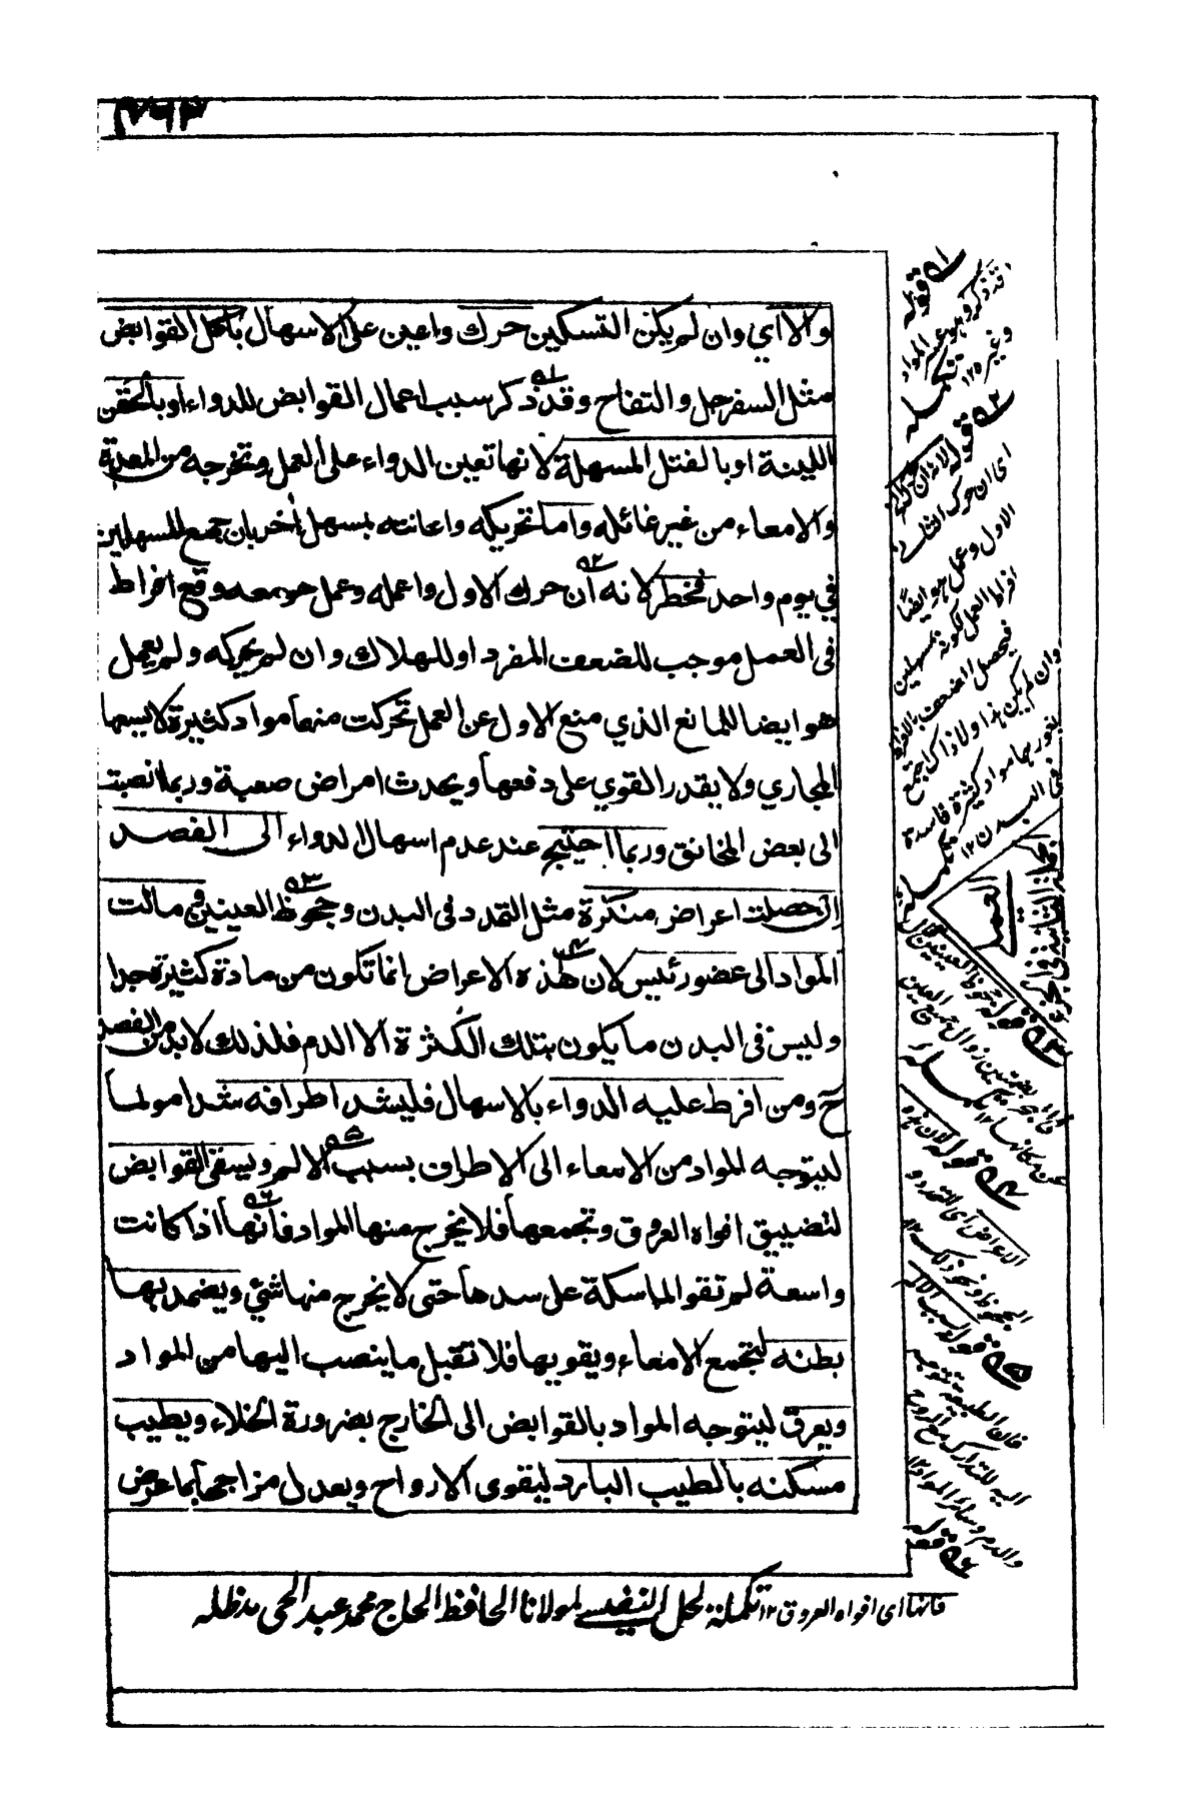 ۴۶۳
والا اي وان لم يكن التسكين حرك واعين على الاسهال بأكل القوابض
مثل السفرجل والتفاح وقد ذكر سبب اعمال القوابض للدواء او بالحقن
اللينة او بالفتل المسهلة لانها تعين الدواء على العمل وتخرجه من المعدة
والامعاء من غير غائلة واما تحريكه واعانته بمسهل أخر بان يجمع المسهلين
في يوم واحد فخطر لانه أن حرك الاول واعمله وعمل هو معه وقع افراط
فى العمل موجب للضعف المفرد او للهلاك وان لم يحركه ولم يعمل
هو ايضا للمانع الذي منع الاول عن العمل تحركت منها مواد كثيرة لا يسعها
المجاري ولا يقدر القوي على دفعها ويحدث امراض صعبة وربما انصبت
الى بعض المخانق وربما احتيج عند عدم اسهال الدواء الى الفصد
ان حصلت اعراض منكرة مثل التمدد فى البدن وجحوظ العينين فى مالت
المواد الى عضو رئيس لان هذه الاعراض انما تكون من مادة كثيرة جدا
وليس فى البدن ما يكون بتلك الكثرة الا الدم فلذلك لابد من الفصد
ح ومن افرط عليه الدواء بالاسهال فليشد اطرافه شدا مولما
ليتوجه المواد من الامعاء الى الاطراف بسبب الالم ويسقى القوابض
لتضييق افواه العروق وتجمعها فلا يخرج منها المواد فانها اذا كانت
واسعة لم تقو الماسكة على سدها حتى لا يخرج منها شئي ويضمد بها
بطنه ليجمع الامعاء ويقويها فلا تقبل ما ينصب اليها من المواد
ويعرق ليتوجه المواد بالقوابض الى الخارج بضرورة الخلاء ويطيب
مسكنه بالطيب البارد ليقوى الارواح ويعدل مزاجها بما عرض
٩١ قوله
وقد ذكر وهو عصر المواد
وغيره ١٢
تكملة
٩٢ قوله لانه ان حرك
اى ان حرك الثانى
الاول وعمل هو ايضا
افراط العمل لكونه بمسهلين
فيحصل الضعف بالافراط
وان لم يكن هذا ولا ذاك اجتمع
بتحريكها مواد كثيرة فاسدة
فى البدن ١٢
تكملة
العمد
٩٣ قوله جحوظ العينين
تكملة
٩٤ قوله لان هذه
الاعراض اى التمدد و
الجحوظ ونحو ذلك ١٢
٩٥ قوله بسبب الالم
فان الطبيعة تتوجه
اليه للتدارك مع الروح
والدم وسائر المواد ١٢
٩٦ قوله
فانها اى افواه العروق ١٢ تكملة لحل النفيسى لمولانا الحافظ الحاج محمد عبد الحى مد ظله